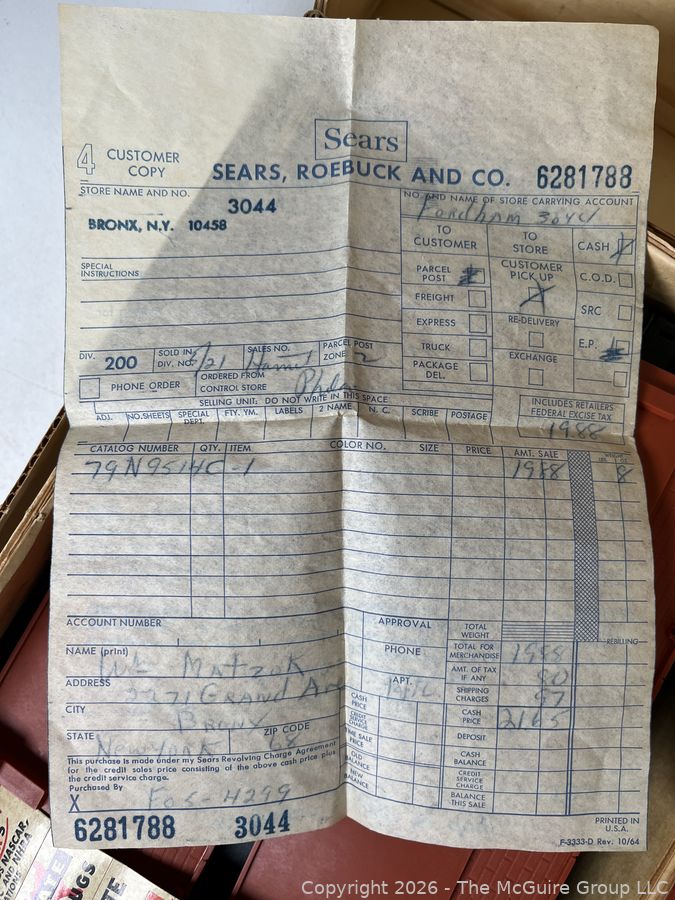 Sears
4 CUSTOMER COPY
SEARS, ROEBUCK AND CO. 6281788
STORE NAME AND NO.
3044
BRONX, N.Y. 10458
NO. AND NAME OF STORE CARRYING ACCOUNT
Fordham 3044
TO CUSTOMER
TO STORE
CASH
PARCEL POST
CUSTOMER PICK UP
C.O.D.
FREIGHT
SRC
EXPRESS
RE-DELIVERY
E.P.
TRUCK
EXCHANGE
PACKAGE DEL.
SPECIAL INSTRUCTIONS
DIV. 200
SOLD IN DIV. NO.
SALES NO.
PARCEL POST ZONE 2
PHONE ORDER
ORDERED FROM CONTROL STORE Phila
SELLING UNIT: DO NOT WRITE IN THIS SPACE
INCLUDES RETAILERS FEDERAL EXCISE TAX
ADJ. NO.SHEETS SPECIAL DEPT. FTY. YM. LABELS 2 NAME N. C. SCRIBE POSTAGE
1988
CATALOG NUMBER QTY. ITEM COLOR NO. SIZE PRICE AMT. SALE WEIGHT LBS. OZS.
79N9514C -1 1988 8
ACCOUNT NUMBER
APPROVAL
TOTAL WEIGHT
REBILLING
NAME (print) Wm Matzok
PHONE
TOTAL FOR MERCHANDISE 1988
ADDRESS 2271 GRAND Ave
APT.
AMT. OF TAX IF ANY 80
SHIPPING CHARGES 97
CITY Bronx
CASH PRICE
CASH PRICE 2165
STATE New York
ZIP CODE
CREDIT SERVICE CHARGE
DEPOSIT
TIME SALE PRICE
CASH BALANCE
This purchase is made under my Sears Revolving Charge Agreement
for the credit sales price consisting of the above cash price plus
the credit service charge.
OLD BALANCE
CREDIT SERVICE CHARGE
Purchased By
NEW BALANCE
BALANCE THIS SALE
X Fo 4299
6281788 3044
PRINTED IN U.S.A.
F-3333-D Rev. 10/64
NASCAR
AND NHRA
UGS
Copyright 2026 - The McGuire Group LLC